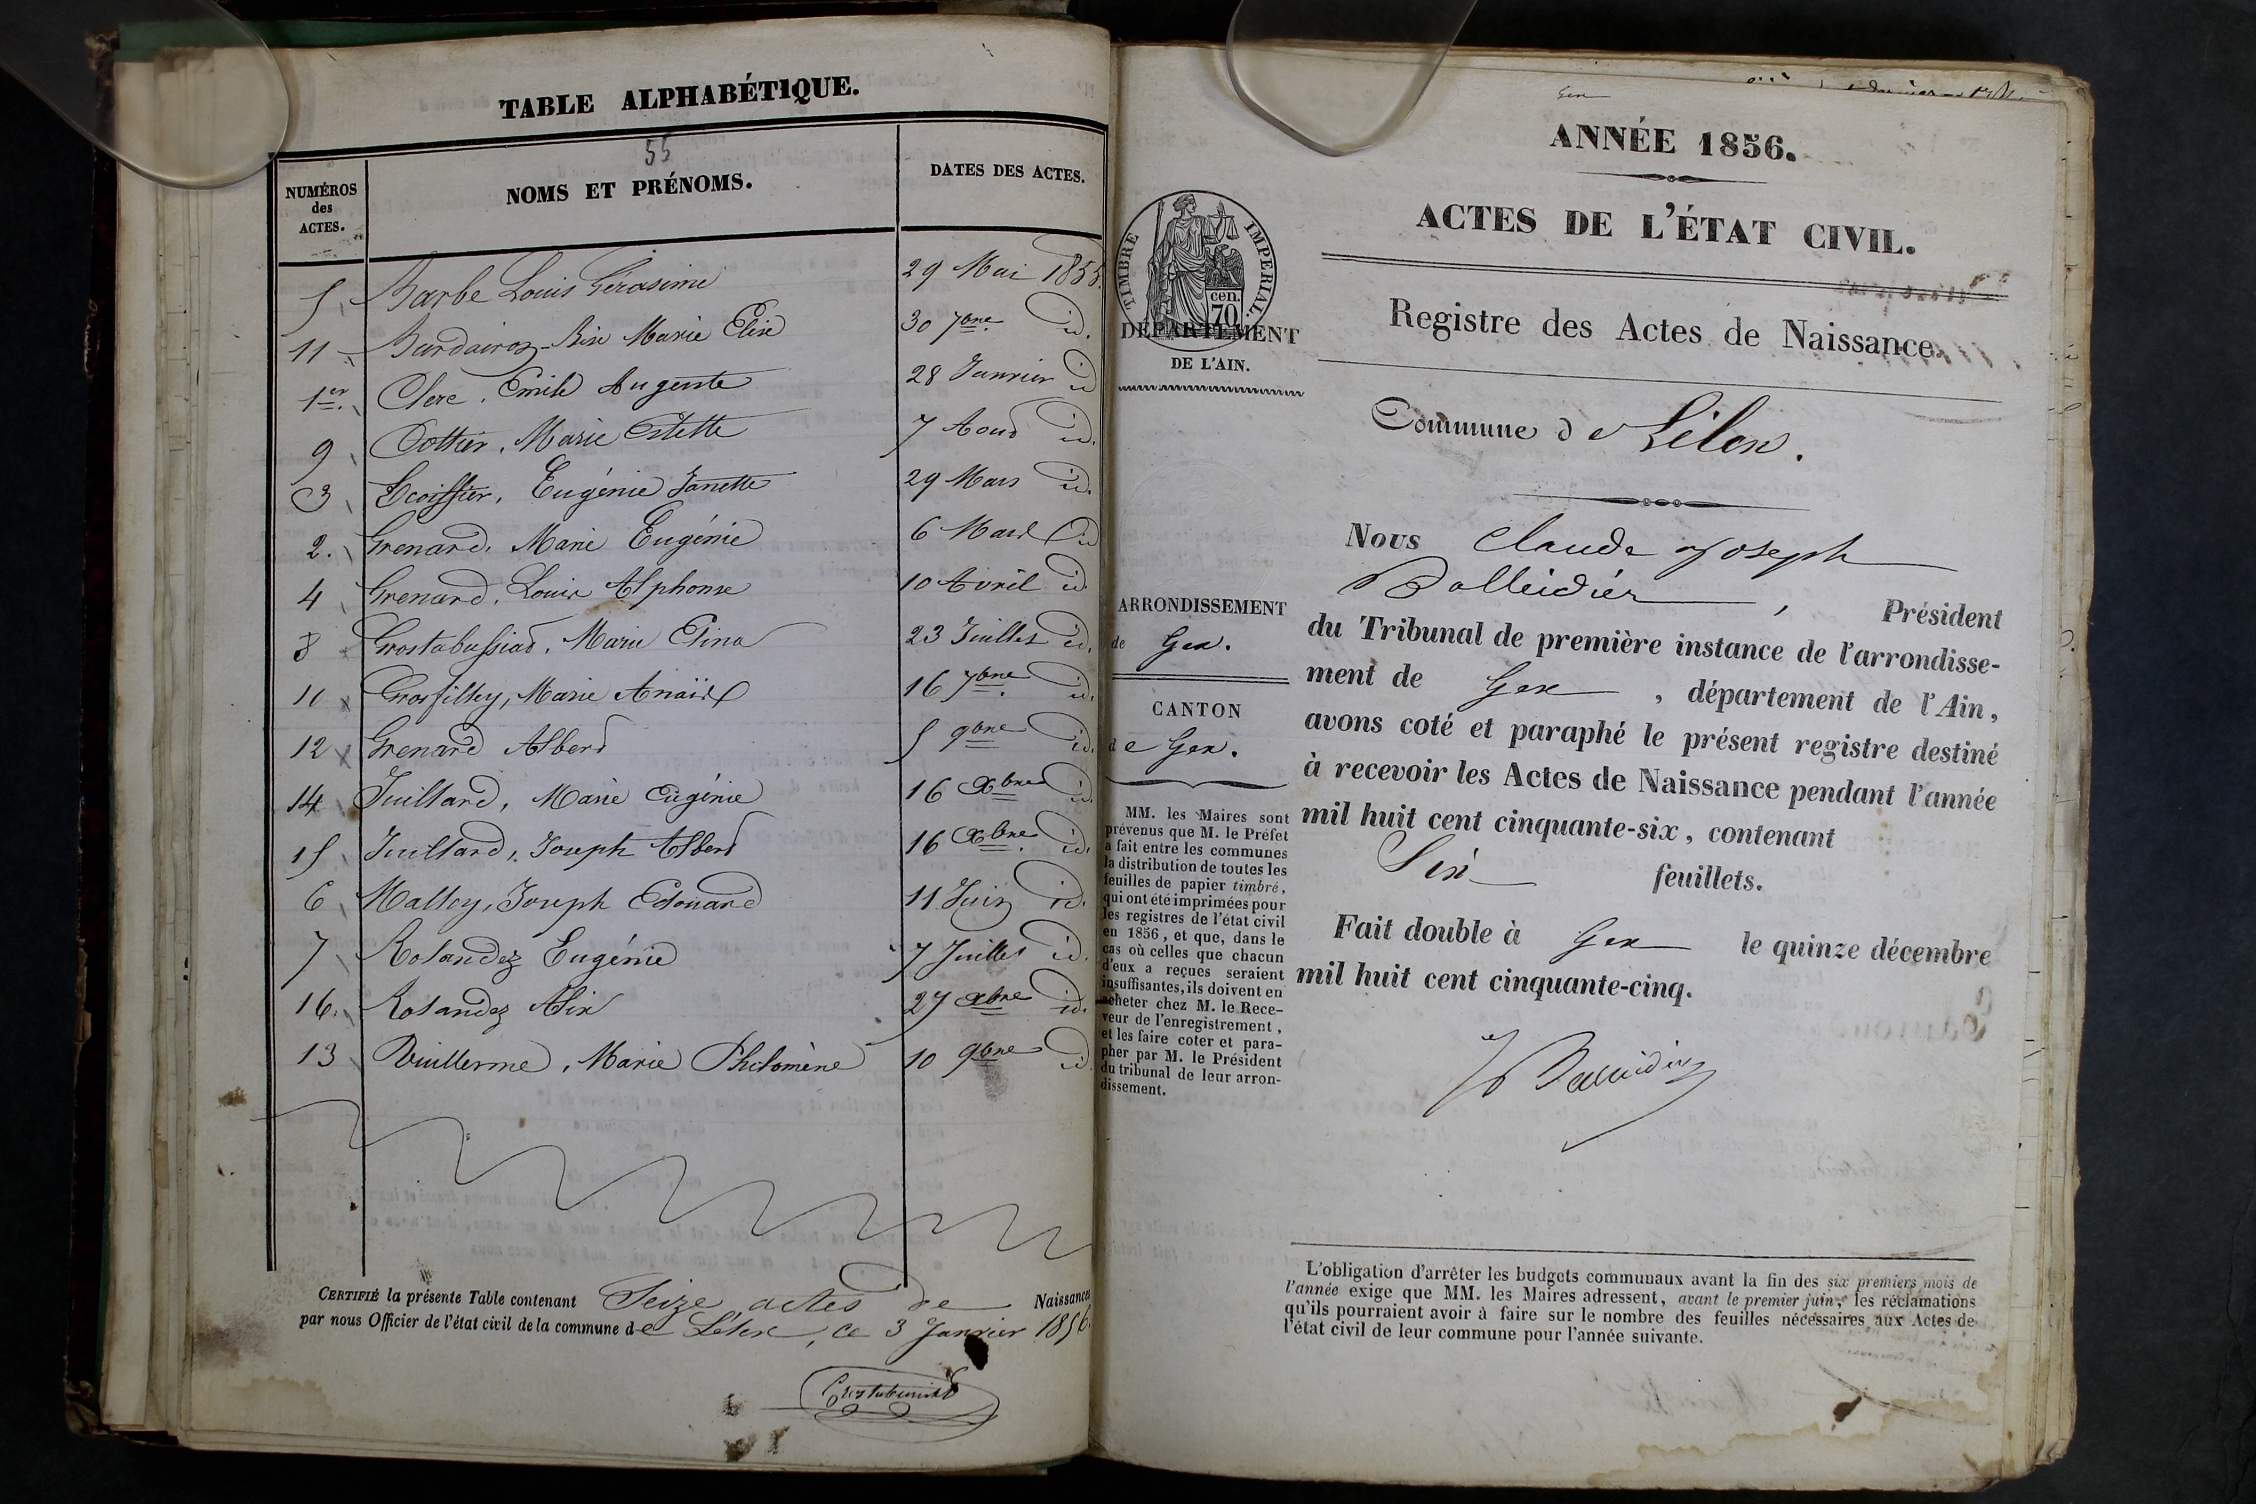 TABLE ALPHABÉTIQUE.
55
NUMÉROS des ACTES.
NOMS ET PRÉNOMS.
DATES DES ACTES.
5 Barbe Louis Gérasime 29 Mai 1855.
11 Marie Elise 30 7bre id.
1er Clerc, Emile Auguste 28 Janvier id
9 Cottier, Marie Estelle 7 Aout id.
3 Ecoiffier, Eugénie Janette 29 Mars id.
2. Grenard, Marie Eugénie 6 Mars id
4 Grenard, Louis Alphonse 10 Avril id
8 Grostabussiat, Marie Elina 23 Juillet id.
10 Grosfilley, Marie Anaïs 16 7bre id.
12 Grenard Albert 5 9bre id.
14 Juillard, Marie Eugénie 16 Xbre id.
15 Juillard, Joseph Albert 16 Xbre id.
6 Malley, Joseph Edouard 11 Juin id.
7 Rolandez Eugénie 7 Juillet id.
16. Rolandez Alix 27 Xbre id.
13 Vuillerme, Marie Philomène 10 9bre id
CERTIFIÉ la présente Table contenant Seize actes de Naissances
par nous Officier de l'état civil de la commune de Lélex, ce 3 Janvier 1856.
Gex
ANNÉE 1856.
ACTES DE L'ÉTAT CIVIL.
TIMBRE IMPERIAL.
cen.
70
DÉPARTEMENT
DE L'AIN.
Registre des Actes de Naissance
Commune de Lélex.
Nous Claude Joseph
Balleidier, Président
du Tribunal de première instance de l'arrondisse-
ment de Gex, département de l'Ain,
avons coté et paraphé le présent registre destiné
à recevoir les Actes de Naissance pendant l'année
mil huit cent cinquante-six, contenant
Six feuillets.
Fait double à Gex le quinze décembre
mil huit cent cinquante-cinq.
ARRONDISSEMENT
de Gex.
CANTON
de Gex.
MM. les Maires sont
prévenus que M. le Préfet
a fait entre les communes
la distribution de toutes les
feuilles de papier timbré,
qui ont été imprimées pour
les registres de l'état civil
en 1856, et que, dans le
cas où celles que chacun
d'eux a reçues seraient
insuffisantes, ils doivent en
acheter chez M. le Rece-
veur de l'enregistrement,
et les faire coter et para-
pher par M. le Président
du tribunal de leur arron-
dissement.
L'obligation d'arrêter les budgets communaux avant la fin des six premiers mois de
l'année exige que MM. les Maires adressent, avant le premier juin, les réclamations
qu'ils pourraient avoir à faire sur le nombre des feuilles nécessaires aux Actes de
l'état civil de leur commune pour l'année suivante.